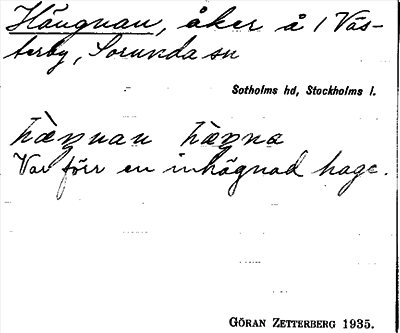 Hängnan, åker å / Väs-
terby, Sorunda sn
Sotholms hd, Stockholms l.
hæŋnan hæŋna
Var förr en inhägnad hage.
GÖRAN ZETTERBERG 1935.